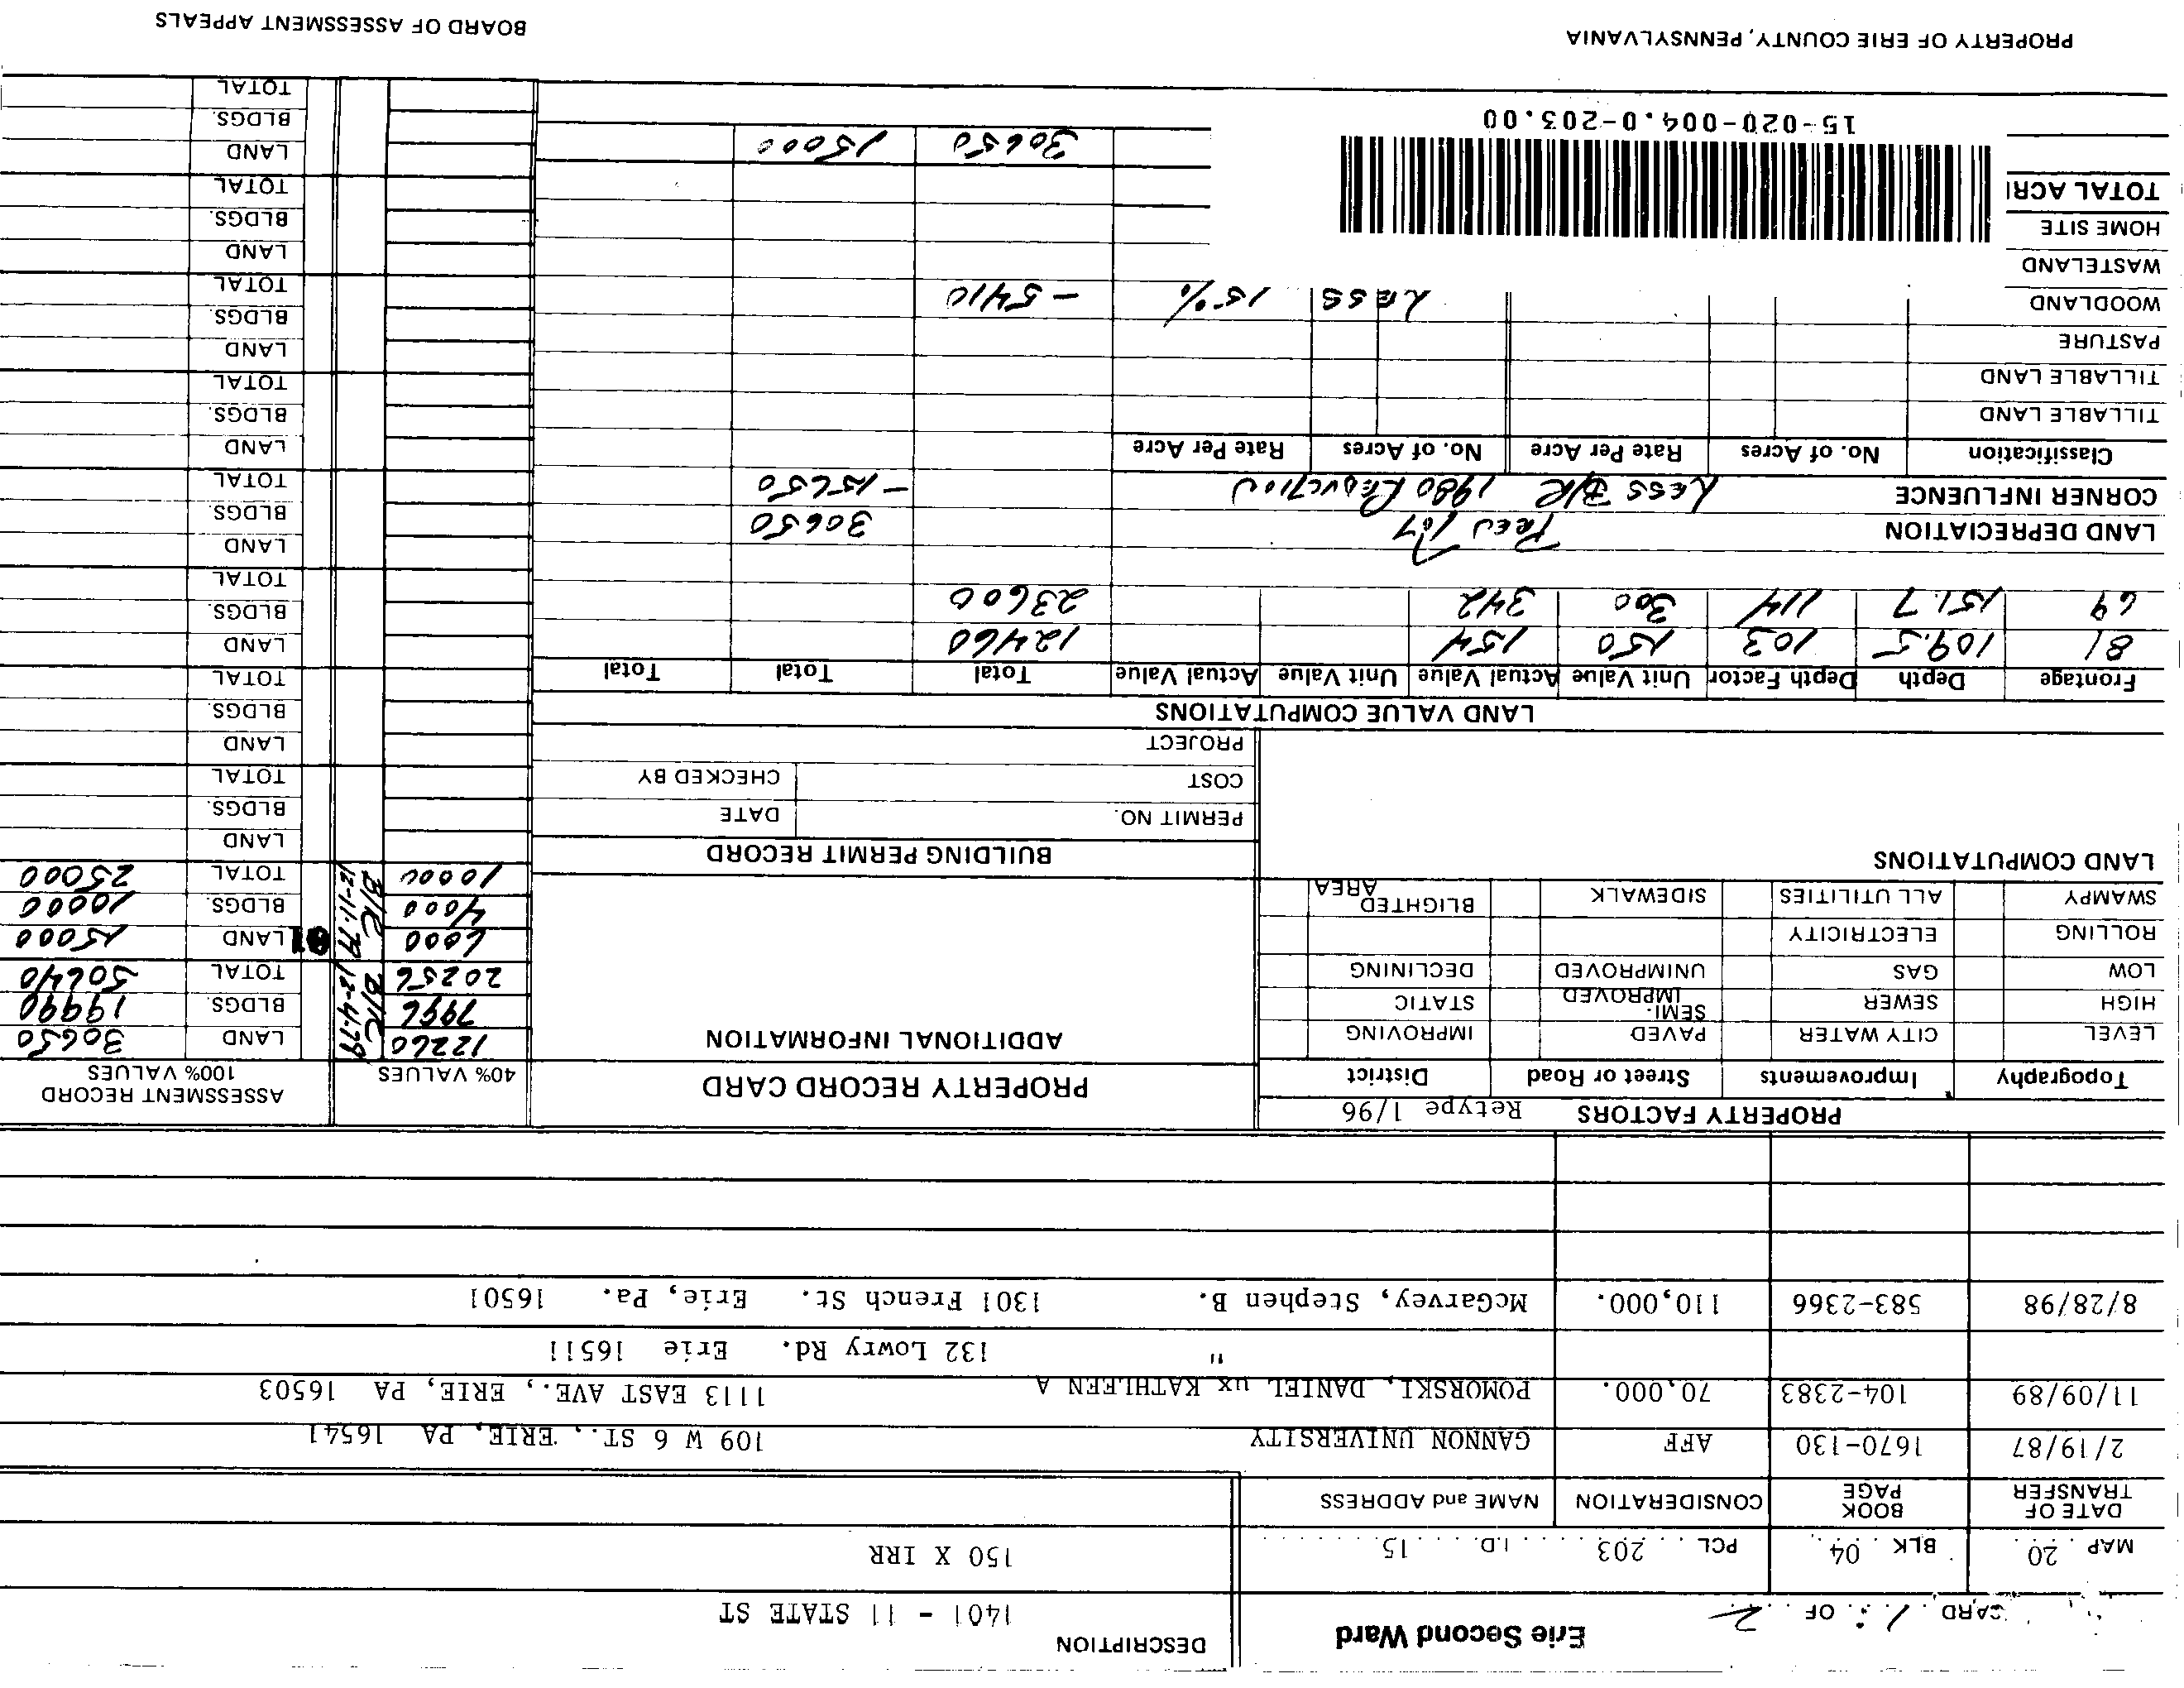 Erie Second Ward
CARD 1 OF 2
DESCRIPTION
1401 - 11 STATE ST
MAP 20 BLK 04 PCL 203 I.D. 15
150 X IRR
DATE OF TRANSFER BOOK PAGE CONSIDERATION NAME and ADDRESS
2/19/87 1670-130 AFF GANNON UNIVERSITY 109 W 6 ST., ERIE, PA 16541
11/09/89 104-2383 70,000. POMORSKI, DANIEL ux KATHLEEN A 1113 EAST AVE., ERIE, PA 16503
" 132 Lowry Rd. Erie 16511
8/28/98 583-2366 110,000. McGarvey, Stephen B. 1301 French St. Erie, Pa. 16501
PROPERTY FACTORS Retype 1/96
PROPERTY RECORD CARD
40% VALUES
ASSESSMENT RECORD
100% VALUES
Topography Improvements Street or Road District
LEVEL CITY WATER PAVED IMPROVING
HIGH SEWER SEMI-IMPROVED STATIC
LOW GAS UNIMPROVED DECLINING
ROLLING ELECTRICITY
SWAMPY ALL UTILITIES SIDEWALK BLIGHTED AREA
ADDITIONAL INFORMATION
12260 B/R 12-4-79 LAND 30650
7996 BLDGS. 19990
20256 TOTAL 50640
6000 B/R 12-11-79 81 LAND 15000
4000 BLDGS. 10000
10000 TOTAL 25000
LAND COMPUTATIONS
BUILDING PERMIT RECORD
PERMIT NO. DATE
COST CHECKED BY
PROJECT
LAND
BLDGS.
TOTAL
LAND
BLDGS.
TOTAL
LAND VALUE COMPUTATIONS
Frontage Depth Depth Factor Unit Value Actual Value Unit Value Actual Value Total Total Total
81 109.5 103 150 154 12460
69 151.7 114 300 342 23600
LAND
BLDGS.
TOTAL
LAND DEPRECIATION Prev Tot 30650
CORNER INFLUENCE Less B/R 1980 Reduction - 15650
LAND
BLDGS.
TOTAL
Classification No. of Acres Rate Per Acre No. of Acres Rate Per Acre
TILLABLE LAND
TILLABLE LAND
PASTURE
WOODLAND LESS 15% - 5410
WASTELAND
HOME SITE
TOTAL ACRE
30650 15000
LAND
BLDGS.
TOTAL
LAND
BLDGS.
TOTAL
LAND
BLDGS.
TOTAL
LAND
BLDGS.
TOTAL
15-020-004.0-203.00
PROPERTY OF ERIE COUNTY, PENNSYLVANIA
BOARD OF ASSESSMENT APPEALS